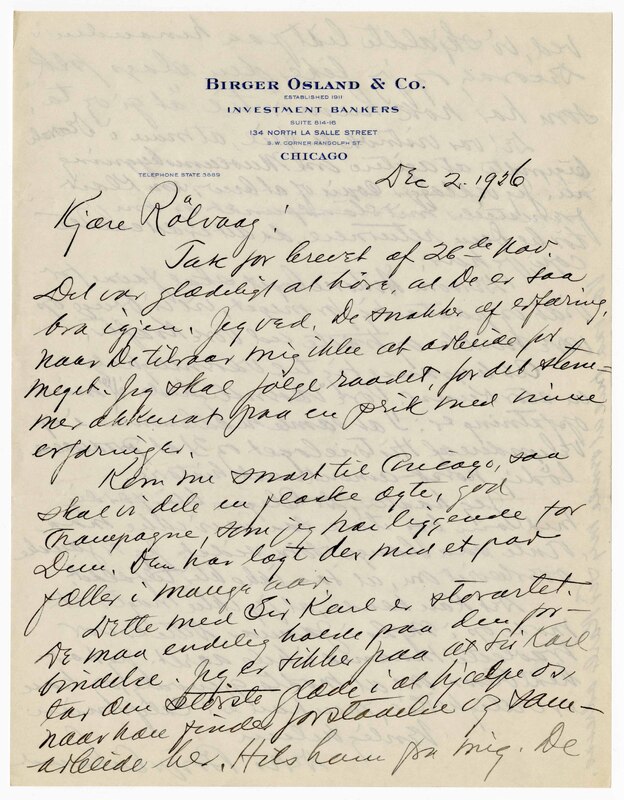 BIRGER OSLAND & CO.
ESTABLISHED 1911
INVESTMENT BANKERS
SUITE 814-16
134 NORTH LA SALLE STREET
S. W. CORNER RANDOLPH ST.
CHICAGO
TELEPHONE STATE 3689
Dec 2. 1926
Kjære Rölvaag!
Tak for brevet af 26de Nov.
Det var glædeligt at höre, at De er saa
bra igjen. Jeg ved, De snakker af erfaring,
naar De tilraar mig ikke at arbeide for
meget. Jeg skal følge raadet, for det stem-
mer akkurat paa en prik med mine
erfaringer.
Kom nu snart til Chicago, saa
skal vi dele en flaske ægte, god
Champagne, som jeg har liggende for
Dem. Den har lagt der med et par
fæller i mange aar.
Dette med Sir Karl er storartet.
De maa endelig holde paa den for-
bindelse. Jeg er sikker paa at Sir Karl
tar den største glæde i at hjælpe os,
naar han finder forstaaelse og sam-
arbeide her. Hils ham fra mig. De